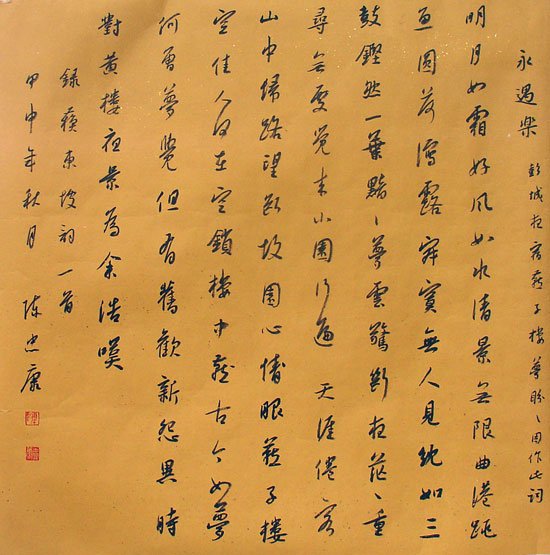 永遇樂 彭城夜宿燕子樓夢盼〻因作此詞
明月如霜好風如水清景無限曲港跳
魚圓荷瀉露寂寞無人見紞如三
鼓鏗然一葉黯〻夢雲驚斷夜茫〻重
尋無處覺來小園行遍 天涯倦客
山中歸路望斷故園心情眼燕子樓
空佳人何在空鎖樓中燕古今如夢
何曾夢覺但有舊歡新怨異時
對黃樓夜景為余浩嘆
錄蘇東坡詞一首
甲申年秋月 陳忠康